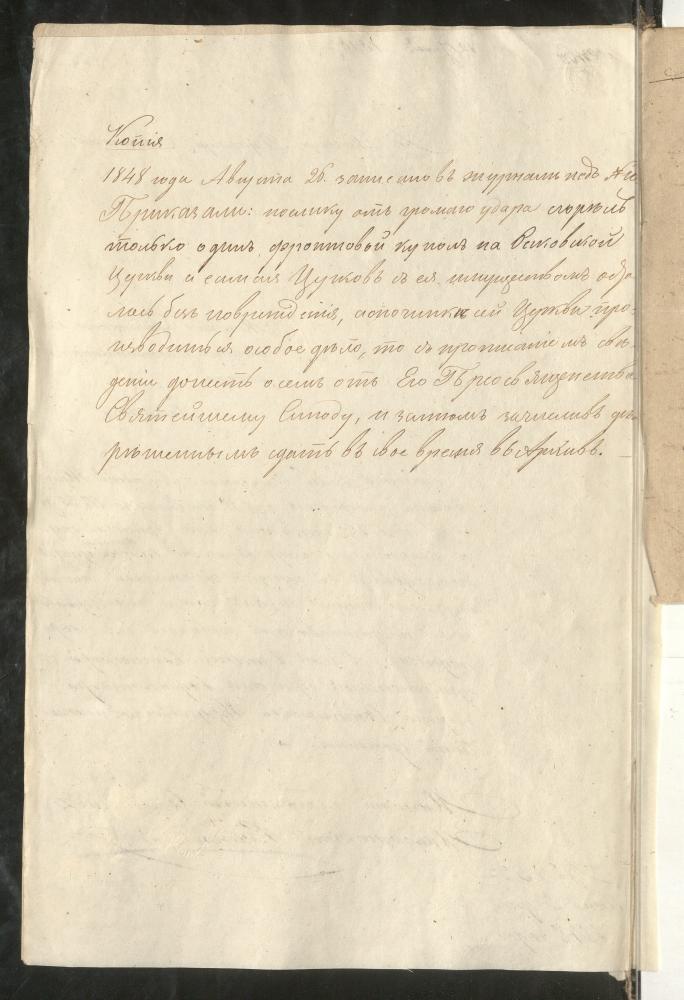 Копія
1848 года Августа 26. записано въ журналѣ подъ №
Приказали: поелику отъ громаго удара сгорѣлъ
только одинъ фронтовый куполъ на Раковской
Церкви а самая Церковь съ ея имуществомъ оста
лась безъ поврежденія, а о починкѣ сей Церкви про-
изводиться особое дѣло, то съ прописаніемъ свѣ-
деніи донесть о семъ отъ Его Преосвященства
Святейшему Синоду, и затѣмъ зачисливъ дѣло
рѣшеннымъ сдать въ свое время въ Архивъ.